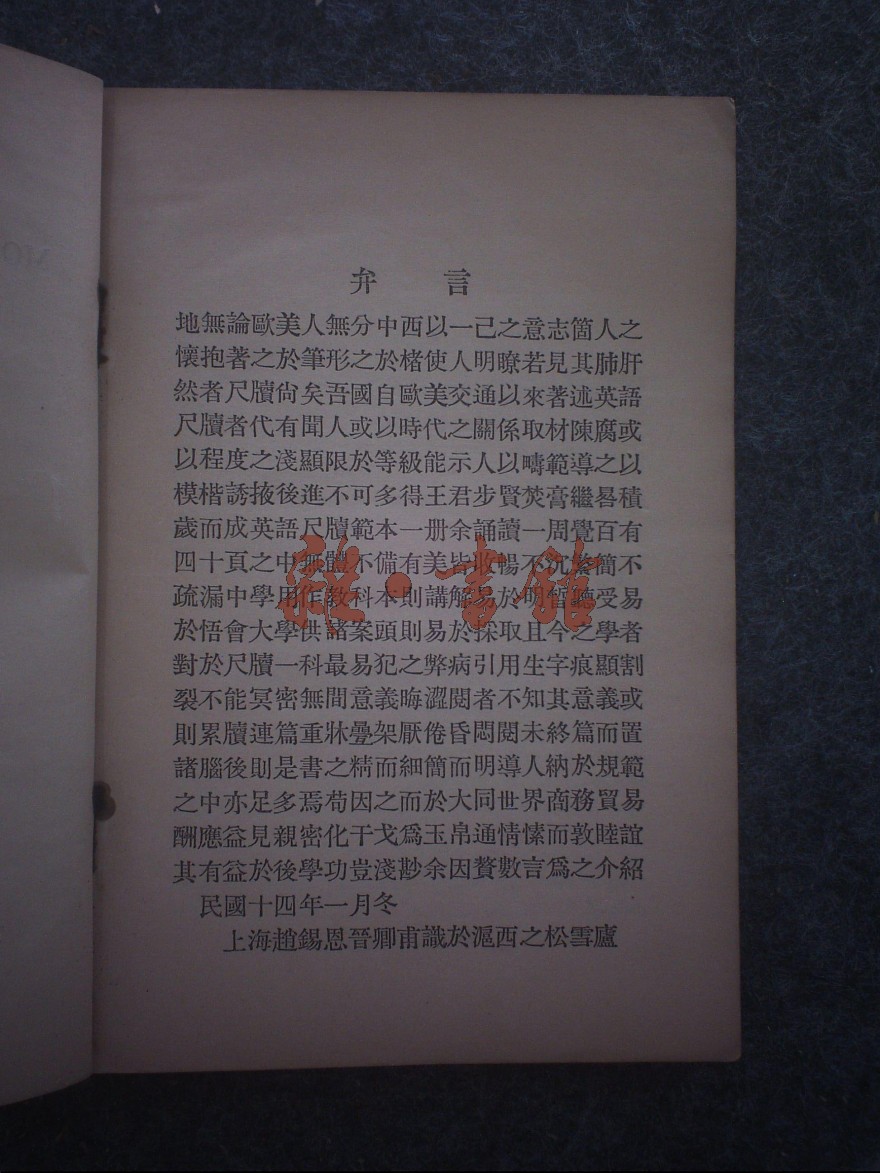 弁言
地無論歐美人無分中西以一己之意志箇人之
懷抱著之於筆形之於楮使人明瞭若見其肺肝
然者尺牘尙矣吾國自歐美交通以來著述英語
尺牘者代有聞人或以時代之關係取材陳腐或
以程度之淺顯限於等級能示人以疇範導之以
模楷誘掖後進不可多得王君步賢焚膏繼晷積
歲而成英語尺牘範本一册余誦讀一周覺百有
四十頁之中無體不備有美皆收暢不沉繁簡不
疏漏中學用作教科本則講解易於明晳聽受易
於悟會大學供諸案頭則易於採取且今之學者
對於尺牘一科最易犯之弊病引用生字痕顯割
裂不能冥密無間意義晦澀閱者不知其意義或
則累牘連篇重牀疊架厭倦昏悶閱未終篇而置
諸腦後則是書之精而細簡而明導人納於規範
之中亦足多焉苟因之而於大同世界商務貿易
酬應益見親密化干戈爲玉帛通情愫而敦睦誼
其有益於後學功豈淺尠余因贅數言爲之介紹
民國十四年一月冬
上海趙錫恩晉卿甫識於滬西之松雪廬
雜·書館